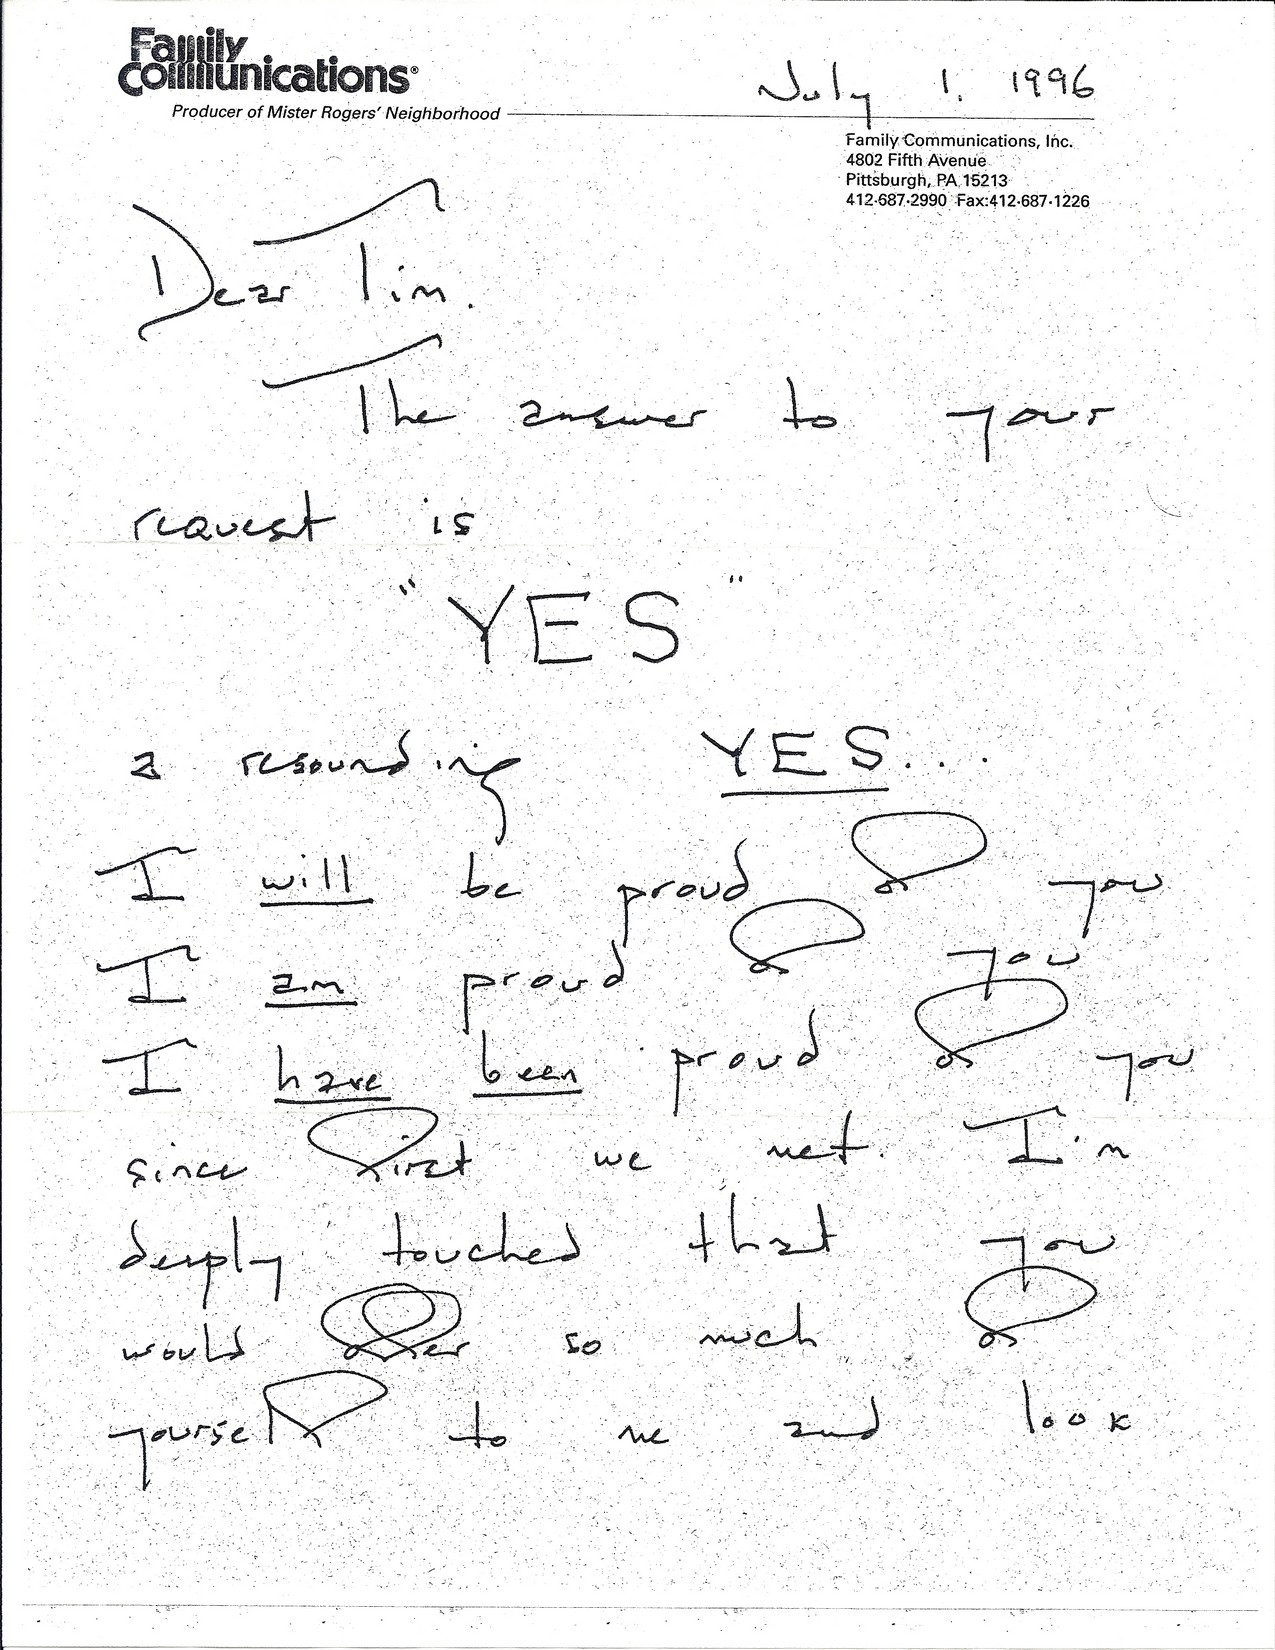 Family
Communications®
Producer of Mister Rogers' Neighborhood
July 1, 1996
Family Communications, Inc.
4802 Fifth Avenue
Pittsburgh, PA 15213
412-687-2990 Fax:412-687-1226
Dear Tim,
The answer to your
request is
"YES"
a resounding YES...
I will be proud of you
I am proud of you
I have been proud of you
since first we met. I'm
deeply touched that you
would offer so much of
yourself to me and look